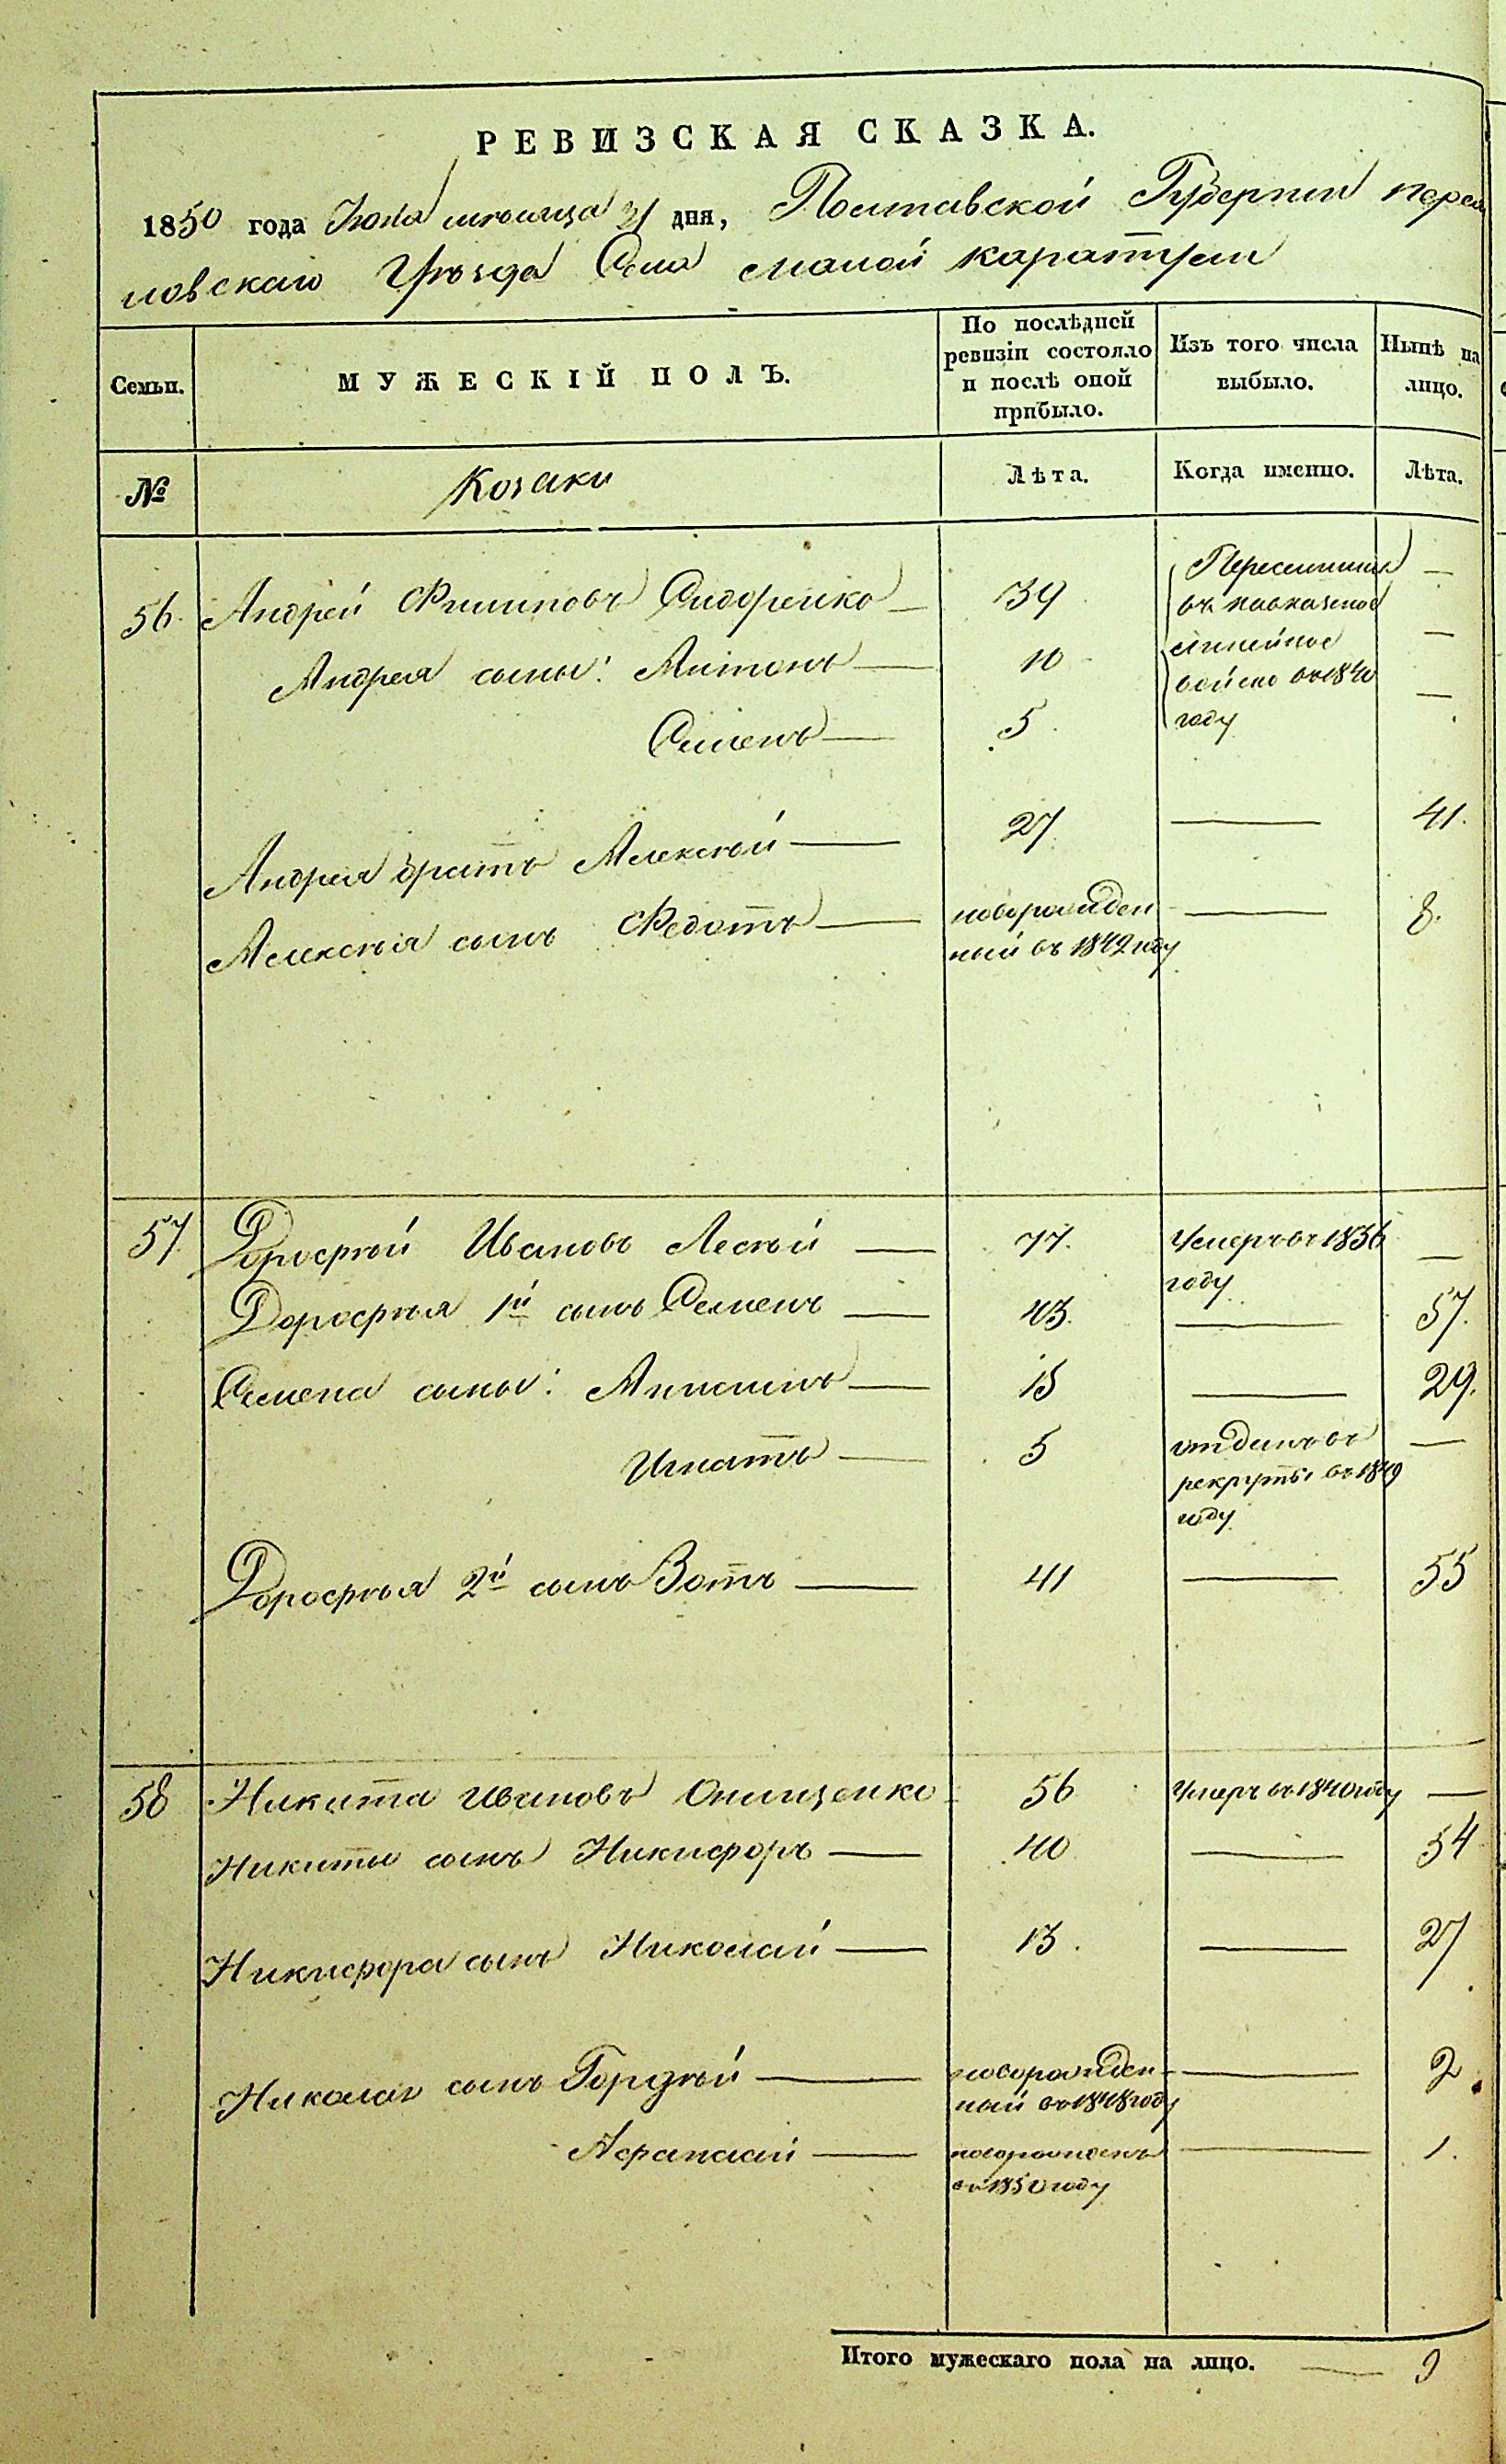 РЕВИЗСКАЯ СКАЗКА.
1850 года Июня месяца 21 дня, Полтавской Губернии Перея
ловскаго Уѣзда Села малой каратули
Семьи.
МУЖЕСКІЙ ПОЛЪ.
По послѣдней ревизіи состояло и послѣ оной прибыло.
Изъ того числа выбыло.
Нынѣ на лицо.
№
Козаки
Лѣта.
Когда именно.
Лѣта.
56. Андрей Филиповъ Сидоренко — 34 Переселились —
въ кавказское
Андрея сыны: Антонъ — 10 линейное —
войско въ 1840 —
Семенъ — 5. году
Андрея братъ Алексѣй — 27. — 41.
Алексѣя сынъ Федотъ — новорожден — 8.
ный въ 1842 году
57. Дорофѣй Ивановъ Лесѣй — 77. Умеръ въ 1836 —
году
Дорофѣя 1й сынъ Семенъ — 43. — 57.
Семена сыны: Анисимъ — 15 — 29.
Игнатъ — 5 отданъ въ —
рекруты въ 1849
году
Дорофѣя 2й сынъ Зотъ — 41 — 55
58 Никита Ивановъ Онищенко — 56 Умеръ въ 1840 году —
Никиты сынъ Никифоръ — 40 — 54
Никифора сынъ Николай — 13. — 27
Николая сынъ Гордѣй — новорожден — 2.
ный въ 1848 году
Афанасий — новорожденъ — 1.
въ 1850 году
Итого мужескаго пола на лицо. — 9